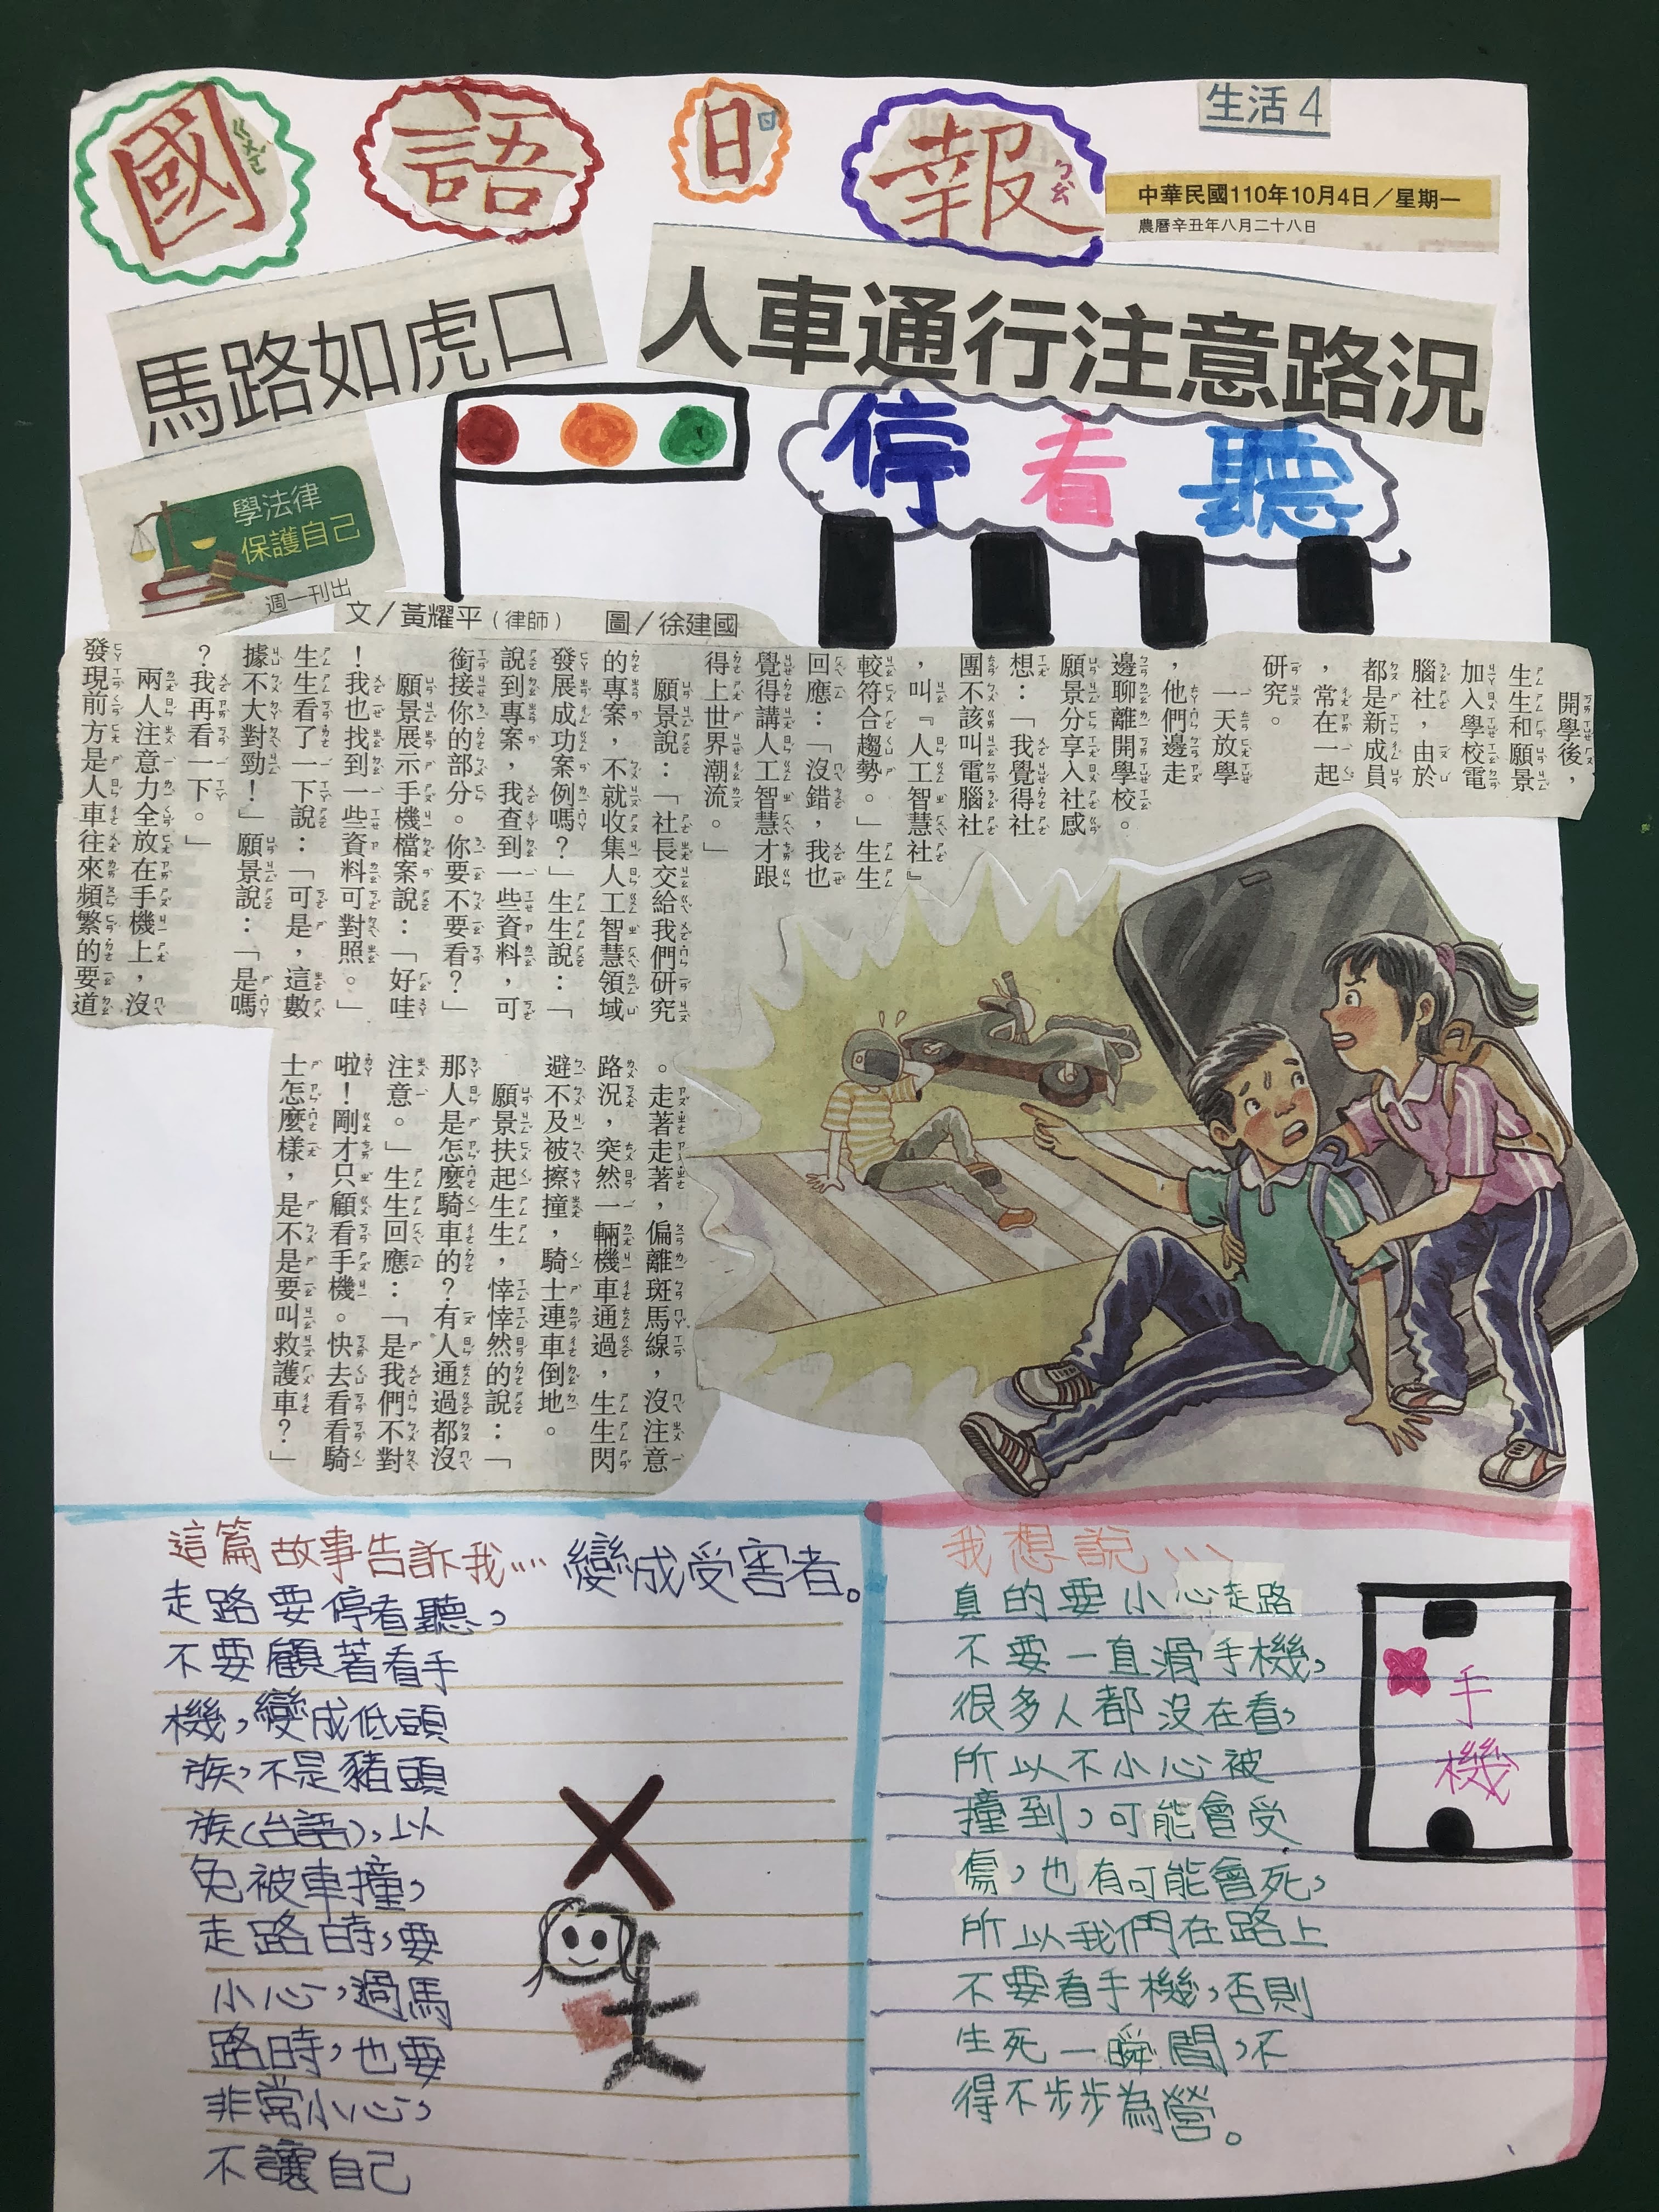 國語日報
生活4
中華民國110年10月4日／星期一
農曆辛丑年八月二十八日
馬路如虎口
人車通行注意路況
停看聽
學法律
保護自己
週一刊出
文／黃耀平（律師）　圖／徐建國
開學後，
生生和願景
加入學校電
腦社，由於
都是新成員
，常在一起
研究。
一天放學
，他們邊走
邊聊離開學校。
願景分享入社感
想：「我覺得社
團不該叫電腦社
，叫『人工智慧社』
較符合趨勢。」生生
回應：「沒錯，我也
覺得講人工智慧才跟
得上世界潮流。」
願景說：「社長交給我們研究
的專案，不就收集人工智慧領域
發展成功案例嗎？」生生說：「
說到專案，我查到一些資料，可
銜接你的部分。你要不要看？」
願景展示手機檔案說：「好哇
！我也找到一些資料可對照。」
生生看了一下說：「可是，這數
據不大對勁！」願景說：「是嗎
？我再看一下。」
兩人注意力全放在手機上，沒
發現前方是人車往來頻繁的要道
。走著走著，偏離斑馬線，沒注意
路況，突然一輛機車通過，生生閃
避不及被擦撞，騎士連車倒地。
願景扶起生生，悻悻然的說：「
那人是怎麼騎車的？有人通過都沒
注意。」生生回應：「是我們不對
啦！剛才只顧看手機。快去看看騎
士怎麼樣，是不是要叫救護車？」
這篇故事告訴我……
走路要停看聽，
不要顧著看手
機，變成低頭
族，不是豬頭
族(台語)，以
免被車撞，
走路時，要
小心，過馬
路時，也要
非常小心，
不讓自己
變成受害者。
我想說……
真的要小心走路
不要一直滑手機，
很多人都沒在看，
所以不小心被
撞到，可能會受
傷，也有可能會死，
所以我們在路上
不要看手機，否則
生死一瞬間，不
得不步步為營。
手
機